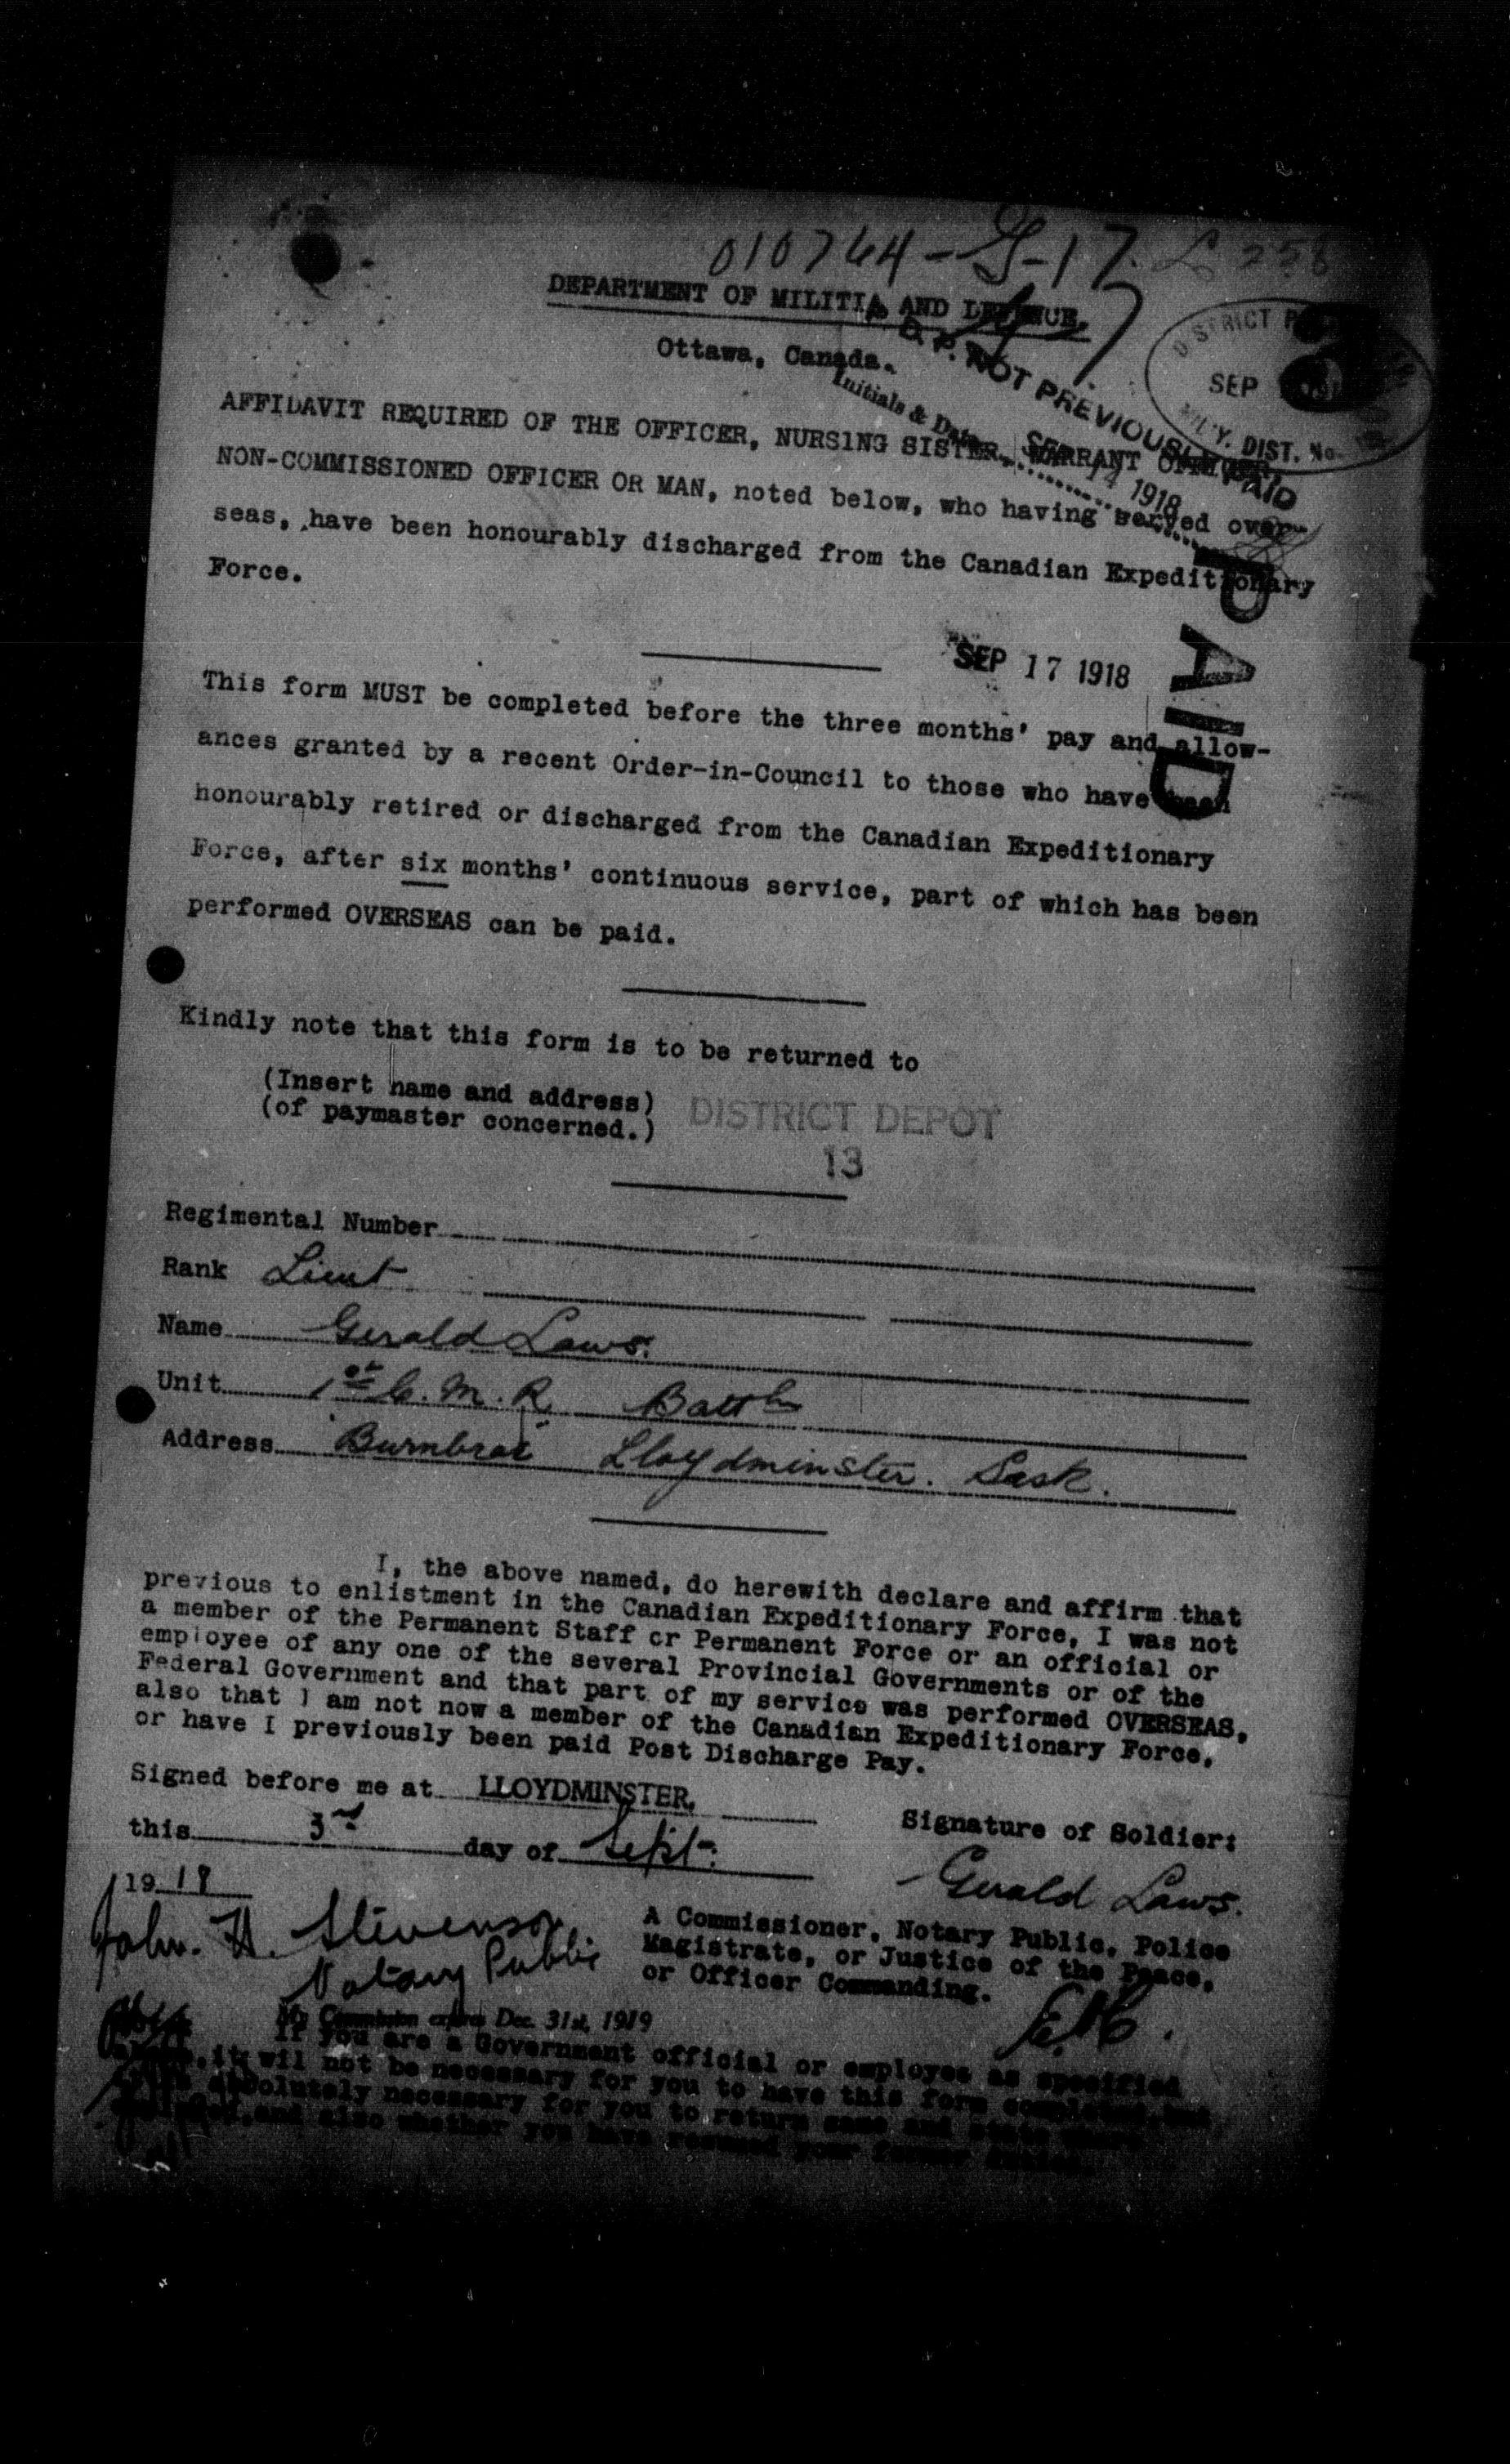 010764-G-17. L 258
DEPARTMENT OF MILITIA AND DEFENCE,
Ottawa, Canada.
P. D. P. NOT PREVIOUSLY PAID
Initials & Date
SEP 14 1918
DISTRICT
SEP
MIL'Y. DIST. No.
AFFIDAVIT REQUIRED OF THE OFFICER, NURSING SISTER, WARRANT OFFICER,
NON-COMMISSIONED OFFICER OR MAN, noted below, who having served over-
seas, have been honourably discharged from the Canadian Expeditionary
Force.
SEP 17 1918
PAID
This form MUST be completed before the three months' pay and allow-
ances granted by a recent Order-in-Council to those who have been
honourably retired or discharged from the Canadian Expeditionary
Force, after six months' continuous service, part of which has been
performed OVERSEAS can be paid.
Kindly note that this form is to be returned to
(Insert name and address)
(of paymaster concerned.)
DISTRICT DEPOT
13
Regimental Number
Rank Lieut
Name Gerald Laws.
Unit 1st C. M. R. Battn
Address Burnbrae Lloydminster. Sask.
I, the above named, do herewith declare and affirm that
previous to enlistment in the Canadian Expeditionary Force, I was not
a member of the Permanent Staff or Permanent Force or an official or
employee of any one of the several Provincial Governments or of the
Federal Government and that part of my service was performed OVERSEAS,
also that I am not now a member of the Canadian Expeditionary Force,
or have I previously been paid Post Discharge Pay.
Signed before me at LLOYDMINSTER,
this 3rd day of Sept.
1918
Signature of Soldier:
Gerald Laws.
John. H. Stevenson
Notary Public
A Commissioner, Notary Public, Police
Magistrate, or Justice of the Peace,
or Officer Commanding.
My Commission expires Dec. 31st, 1919
If you are a Government official or employee as specified
it wil not be necessary for you to have this form completed, but
absolutely necessary for you to return same and state
and also whether you have resumed your former